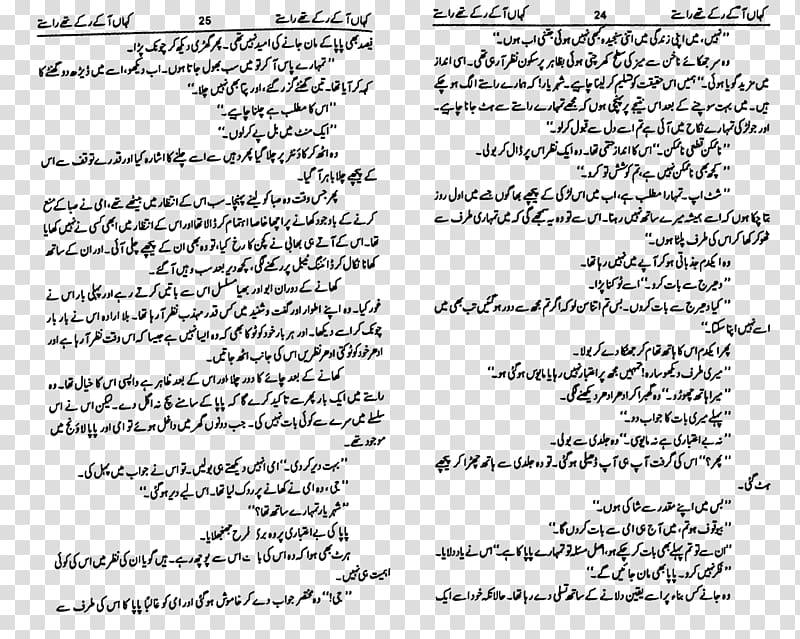 کہاں آ کے رکنے تھے راستے 24 کہاں آ کے رکنے تھے راستے
”نہیں، میں اپنی زندگی میں اتنی سنجیدہ کبھی نہیں ہوئی جتنی اب ہوں۔“
وہ سر جھکائے ناخن سے میز کی سطح کھرچتی ہوئی بظاہر پرسکون نظر آ رہی تھی۔ اسی انداز
میں مزید گویا ہوئی۔ ”ہمیں اس حقیقت کو تسلیم کر لینا چاہیے۔ شہریار! کہ ہمارے راستے الگ ہو چکے
ہیں۔ میں بہت سوچنے کے بعد اس نتیجے پر پہنچی ہوں کہ مجھے تمہارے راستے سے ہٹ جانا چاہیے۔
اور جو لڑکی تمہارے نکاح میں آئی ہے تم اسے دل سے قبول کر لو۔“
”ناممکن قطعی ناممکن۔“ اس کا انداز حتمی تھا۔ وہ ایک نظر اس پر ڈال کر بولی۔
”کچھ بھی ناممکن نہیں ہے، تم کوشش تو کرو۔“
”شٹ اپ۔ تمہارا مطلب ہے، اب میں اس لڑکی کے پیچھے بھاگوں جسے میں اول روز
بتا چکا ہوں کہ اسے ہمیشہ میرے ساتھ نہیں رہنا۔ اس سے تو وہ یہ سمجھے گی کہ میں تمہاری طرف سے
ٹھوکر کھا کر اس کی طرف پلٹا ہوں۔“
وہ ایکدم جذباتی ہو کر آپے میں نہیں رہا تھا۔
”دھیرج سے بات کرو۔“ اسے ٹوکنا پڑا۔
”کیا دھیرج سے بات کروں۔ بس تم اتنا سن لو کہ اگر تم مجھ سے دور ہو گئیں تب بھی میں
اسے نہیں اپنا سکتا۔“
پھر ایکدم اس کا ہاتھ تھام کر جھٹکا دے کر بولا۔
”میری طرف دیکھو سارہ! تمہیں مجھ پر اعتبار نہیں رہا یا مایوس ہو گئی ہو۔“
”میرا ہاتھ چھوڑو۔“ وہ گھبرا کر ادھر ادھر دیکھنے لگی۔
”پہلے میری بات کا جواب دو۔“
”نہ بے اعتباری ہے نہ مایوسی۔“ وہ جلدی سے بولی۔
”پھر؟“ اس کی گرفت آپ ہی آپ ڈھیلی ہو گئی۔ تو وہ جلدی سے ہاتھ چھڑا کر پیچھے
ہٹ گئی۔
”بس میں اپنے مقدر سے شاکی ہوں۔“
”بیوقوف ہو تم، میں آج ہی امی سے بات کروں گا۔“
”ان سے تو تم پہلے بھی بات کر چکے ہو، اصل مسئلہ تو تمہارے پاپا کا ہے۔“ اس نے یاد دلایا۔
”فکر نہیں کرو۔ پاپا بھی مان جائیں گے۔“
وہ جانے کس بناء پر اسے یقین دلانے کے ساتھ تسلی دے رہا تھا۔ حالانکہ خود اسے ایک
کہاں آ کے رکنے تھے راستے 25 کہاں آ کے رکنے تھے راستے
فیصد بھی پاپا کے مان جانے کی امید نہیں تھی۔ پھر گھڑی دیکھ کر چونک پڑا۔
”تمہارے پاس آ کر تو میں سب بھول جاتا ہوں۔ اب دیکھو، امی سے میں ڈیڑھ دو گھنٹے کا
کہہ کر آیا تھا۔ تین گھنٹے گزر گئے، اور پتا بھی نہیں چلا۔“
”اس کا مطلب ہے چلنا چاہیے۔“
”ایک منٹ میں بل پے کر لوں۔“
وہ اٹھ کر کاؤنٹر پر چلا گیا پھر وہیں سے اسے چلنے کا اشارہ کیا اور قدرے توقف سے اس
کے پیچھے چلا باہر آ گیا۔
پھر جس وقت وہ صبا کو لینے پہنچا۔ سب اس کے انتظار میں بیٹھے تھے، امی نے صبا کے منع
کرنے کے باوجود کھانے پر اچھا خاصا اہتمام کر ڈالا تھا اور اس کے انتظار میں ابھی کسی نے نہیں کھایا
تھا۔ اس کے آتے ہی بھابی نے کچن کا رخ کیا، تو وہ بھی ان کے پیچھے چلی آئی۔ اور ان کے ساتھ
کھانا نکال کر ڈائننگ ٹیبل پر رکھنے لگی، کچھ دیر بعد سب وہیں آ گئے۔
کھانے کے دوران ابو اور بھیا مسلسل اس سے باتیں کرتے رہے اور پہلی بار اس نے
غور کیا۔ وہ اپنے اطوار اور گفت و شنید میں کس قدر مہذب نظر آ رہا تھا۔ بلا ارادہ اس نے بار بار
چونک کر اسے دیکھا۔ اور ہر بار خود کو ٹوکا بھی کہ وہ ایسا نہیں ہے جیسا کہ اس وقت نظر آ رہا ہے اور
ادھر خود کو ٹوکتی ادھر نظریں اس کی جانب اٹھ جاتیں۔
کھانے کے بعد چائے کا دور چلا اور اس کے بعد ظاہر ہے واپسی اس کا خیال تھا۔ وہ
راستے میں ایک بار پھر سے تاکید کرے گا کہ پاپا کے سامنے سچ نہ اگل دے۔ لیکن اس نے اس
سلسلے میں سرے سے کوئی بات نہیں کی۔ جب دونوں گھر میں داخل ہوئے تو امی اور پاپا لاؤنج میں
موجود تھے۔
”بہت دیر کر دی۔“ امی انہیں دیکھتے ہی بولیں۔ تو اس نے جواب میں پہل کی۔
”جی، وہ امی نے کھانے پر روک لیا تھا۔ اس لیے دیر ہو گئی۔“
”شہریار تمہارے ساتھ تھا؟“
پاپا کی بے اعتباری پر وہ بری طرح جھنجھلایا۔
ہرٹ بھی ہوا کہ وہ اس کی بات اس سے پوچھ رہے۔ ہیں گویا ان کی نظر میں اس کی کوئی
اہمیت ہی نہیں۔
”جی!“ وہ مختصر جواب دے کر خاموش ہو گئی اور امی کو غالباً پاپا کا اس کی طرف سے